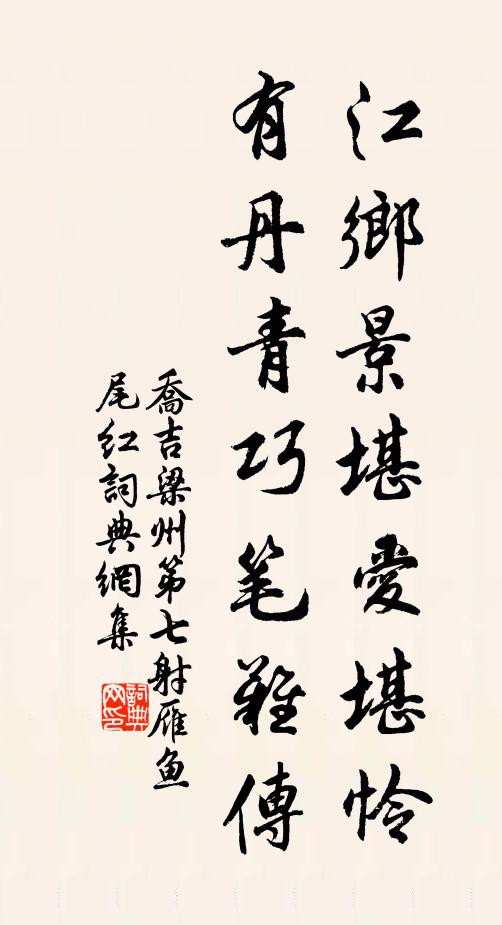 江鄉景堪愛堪怜
有丹青巧笔難傳
喬吉梁州第七射雁魚
尾红詞典網集
詞典
网印